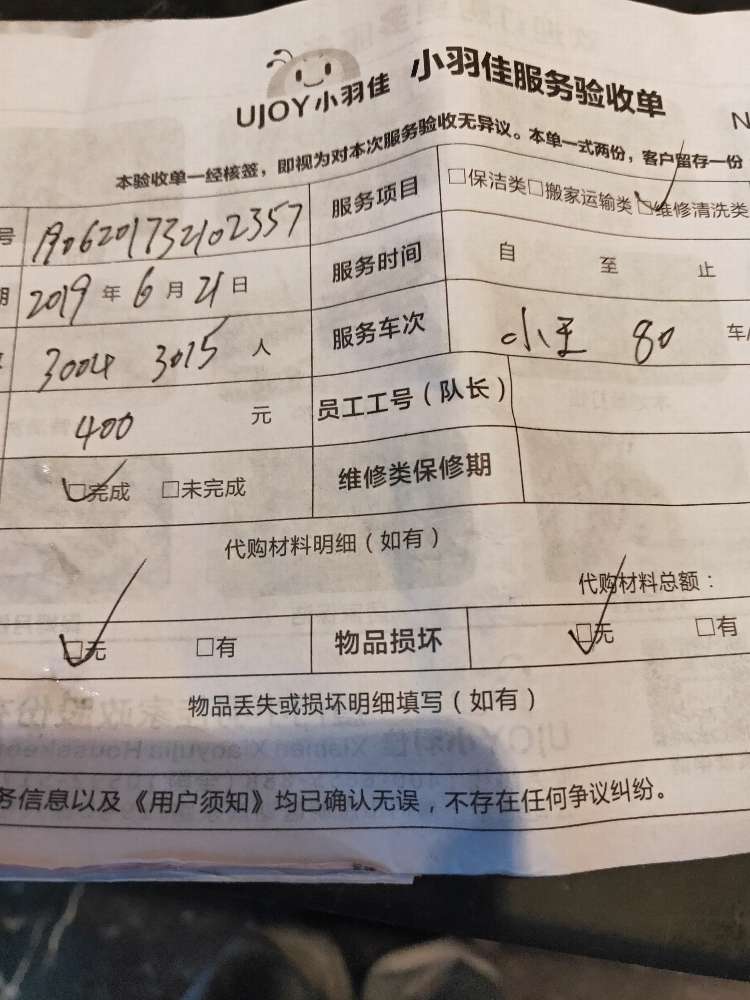 UJOY小羽佳 小羽佳服务验收单
N
本验收单一经核签，即视为对本次服务验收无异议。本单一式两份，客户留存一份
号 1906201732102357 服务项目 □保洁类□搬家运输类□维修清洗类
期 2019年6月21日 服务时间 自 至 止
3004 3015 人 服务车次 小王 80 车/
400 元 员工工号（队长）
□完成 □未完成 维修类保修期
代购材料明细（如有）
代购材料总额：
□无 □有 物品损坏 □无 □有
物品丢失或损坏明细填写（如有）
务信息以及《用户须知》均已确认无误，不存在任何争议纠纷。